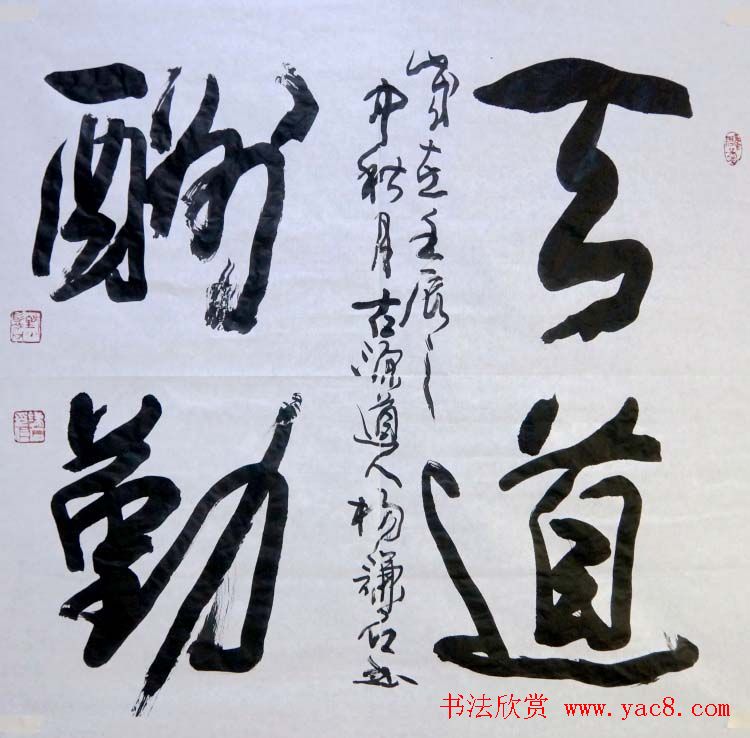 天道
酬勤
岁在壬辰之
中秋月古源道人杨谦石书
书法欣赏 www.yac8.com